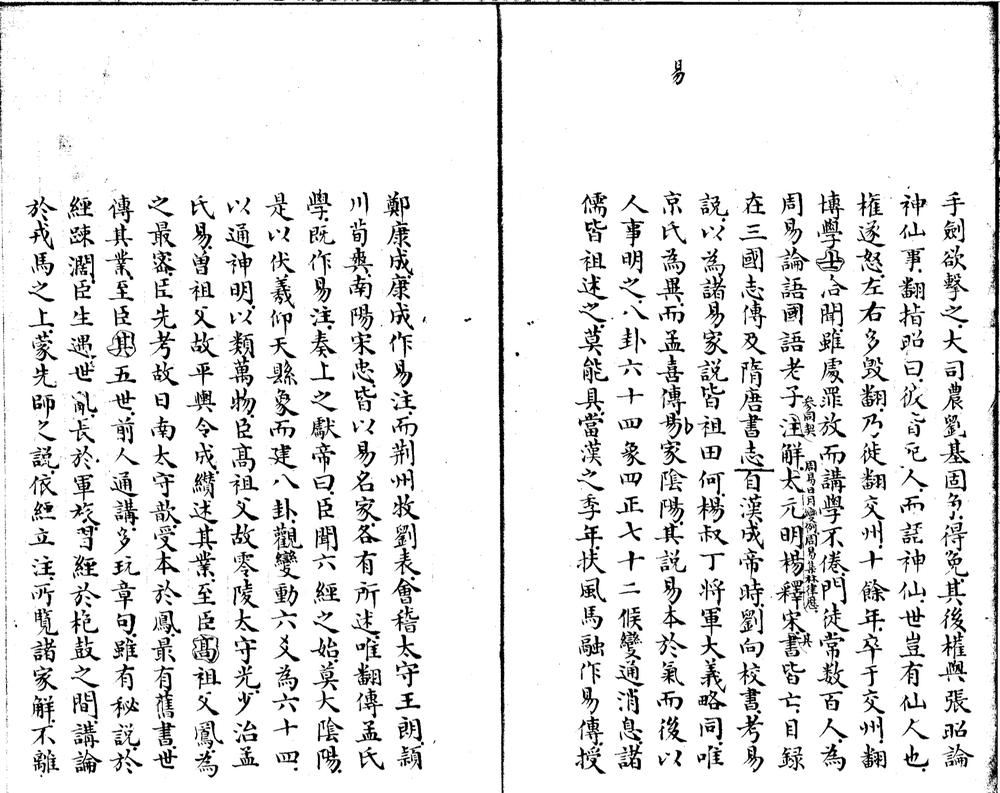 易
手劍欲擊之大司農劉基固爭得免其後權與張昭論
神仙事翻指昭曰彼皆死人而語神仙世豈有仙人也
權遂怒左右多毀翻乃徙翻交州十餘年卒于交州翻
博學士洽聞雖處罪放而講學不倦門徒常數百人為
周易論語國語老子參同契注解太元明楊釋宋周易日月變例周易集林律歷其書皆亡目錄
在三國志傳及隋唐書志自漢成帝時劉向校書考易
說以為諸易家說皆祖田何楊叔丁將軍大義略同唯
京氏為異而孟喜傳易家陰陽其說易本於氣而後以
人事明之八卦六十四象四正七十二候變通消息諸
儒皆祖述之莫能具當漢之季年扶風馬融作易傳授
鄭康成康成作易注而荆州牧劉表會稽太守王朗穎
川荀爽南陽宋忠皆以易名家各有所述唯翻傳孟氏
學既作易注奏上之獻帝曰臣聞六經之始莫大陰陽
是以伏羲仰天縣象而建八卦觀變動六爻為六十四
以通神明以類萬物臣高祖父故零陵太守光少治孟
氏易曾祖父故平輿令成纘述其業至臣高祖父鳳為
之最審臣先考故日南太守歆受本於鳳最有舊書世
傳其業至臣其五世前人通講多玩章句雖有秘說於
經踈濶臣生遇世亂長於軍旅習經於枹鼓之間講論
於戎馬之上蒙先師之說依經立注所覽諸家解不離